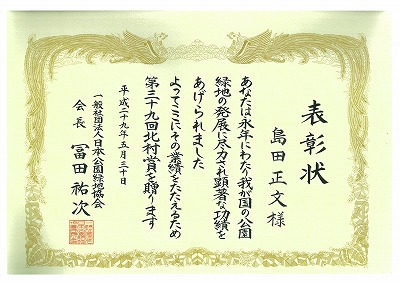 表彰状
島田正文様
あなたは永年にわたり我が国の公園
緑地の発展に尽力され顕著な功績を
あげられました
よってここにその業績をたたえるため
第三十九回北村賞を贈ります
平成二十九年五月三十日
一般社団法人日本公園緑地協会
会長 冨田祐次